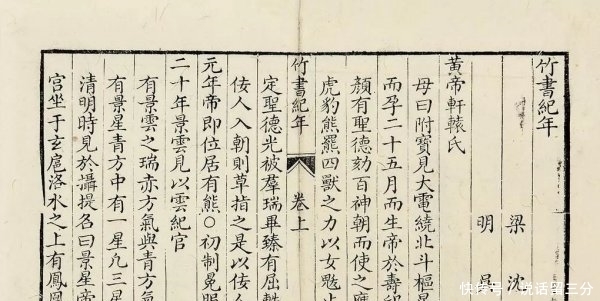 竹書紀年
梁 沈
明
黃帝軒轅氏
母曰附寶見大電繞北斗樞星
而孕二十五月而生帝於壽
顏有聖德劾百神朝而使之應
虎豹熊羆四獸之力以女魃止
竹書紀年 卷上
定聖德光被羣瑞畢臻有屈軼
佞人入朝則草指之是以佞
元年帝即位居有熊○初制冕服
二十年景雲見以雲紀官
有景雲之瑞赤方氣與青方氣
有景星青方中有一星凡三星
清明時見於攝提名曰景星帝
宮坐于玄扈洛水之上有鳳凰
快傳號/說話留三分